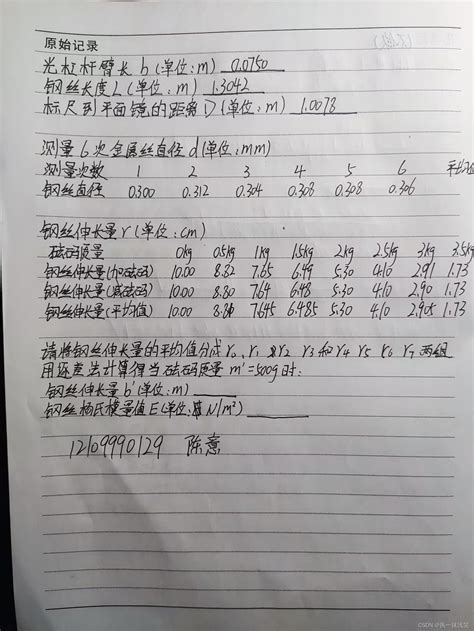 原始记录
光杠杆臂长 b(单位:m) 0.0750
钢丝长度 L(单位:m) 1.3042
标尺到平面镜的距离 D(单位:m) 1.0078
测量6次金属丝直径 d(单位:mm)
测量次数 1 2 3 4 5 6 平均值
钢丝直径 0.300 0.312 0.304 0.308 0.308 0.306
钢丝伸长量 r(单位:cm)
砝码质量 0kg 0.5kg 1kg 1.5kg 2kg 2.5kg 3kg 3.5kg
钢丝伸长量(加砝码) 10.00 8.82 7.65 6.49 5.30 4.10 2.91 1.73
钢丝伸长量(减砝码) 10.00 8.80 7.64 6.48 5.30 4.10 2.90 1.73
钢丝伸长量(平均值) 10.00 8.81 7.645 6.485 5.30 4.10 2.905 1.73
请将钢丝伸长量的平均值分成 r₀, r₁ r₂ r₃ 和 r₄ r₅ r₆ r₇ 两组
用逐差法计算得当砝码质量 m'=500g时:
钢丝伸长量 b'(单位:m)
钢丝杨氏模量值 E(单位: N/m²)
12109990129 陈意